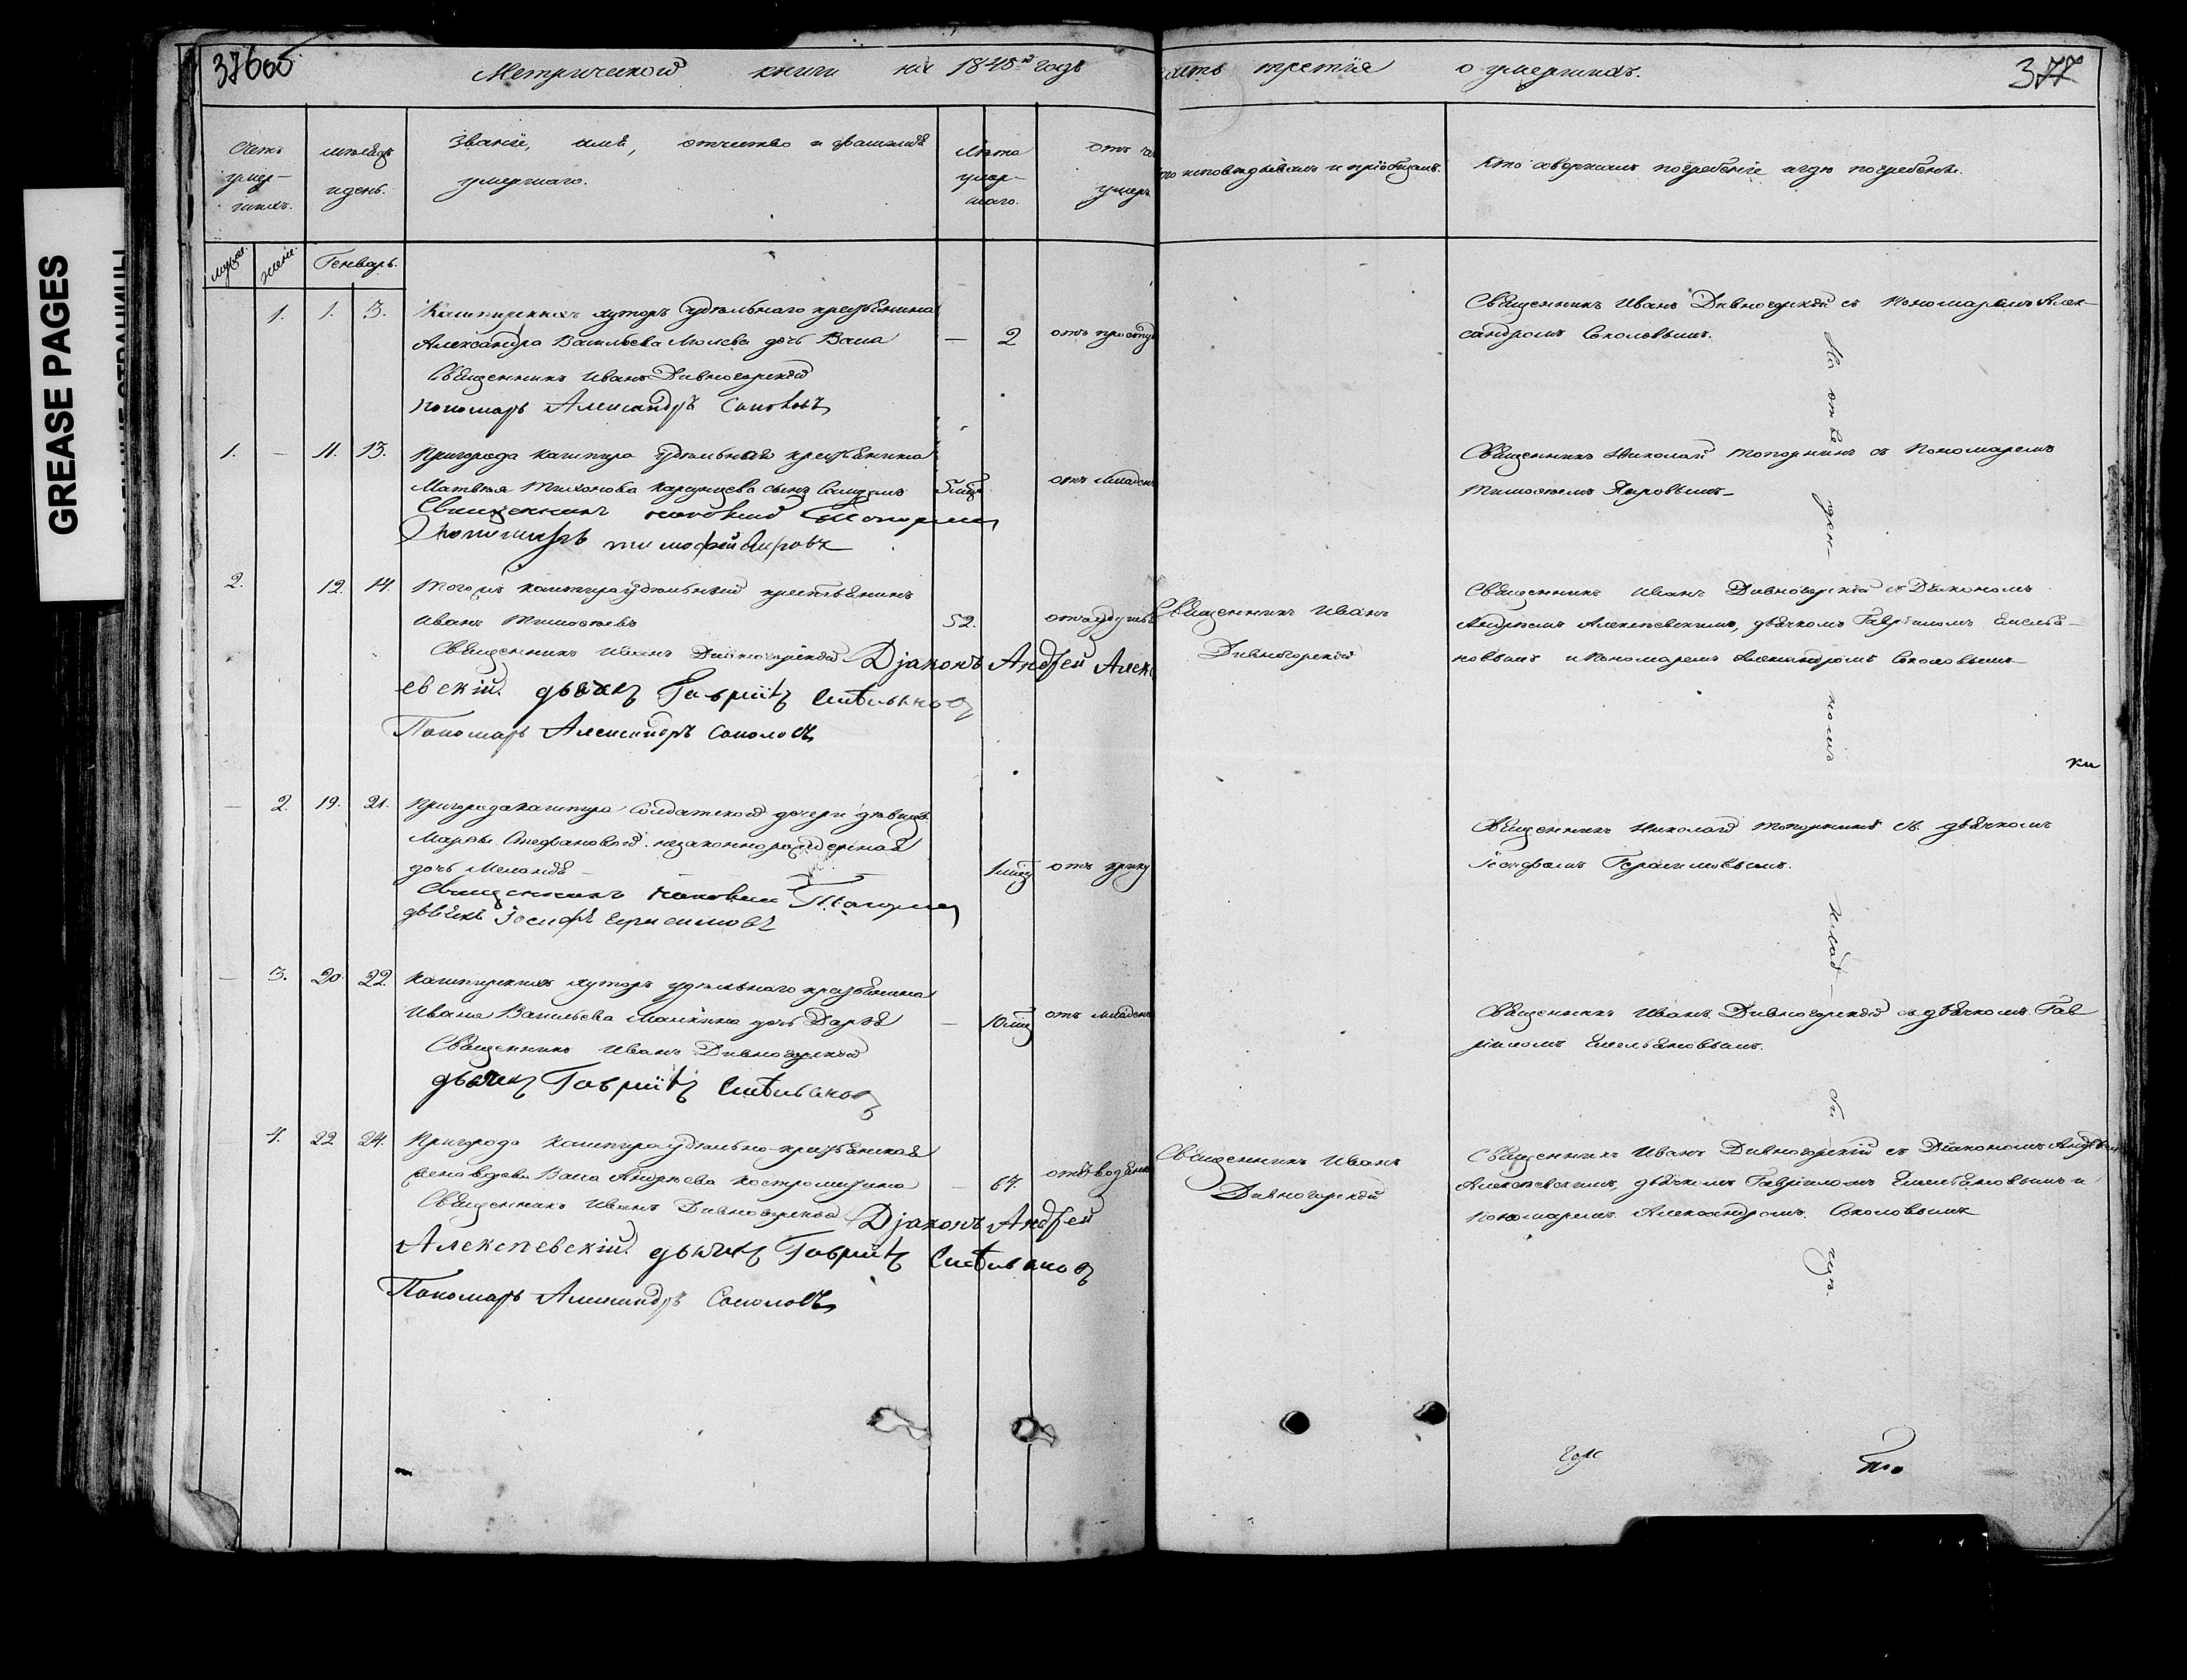 GREASE PAGES
376об
Метрической книги на 1845й годъ
часть третія о умершихъ.
377
Счетъ умер-шихъ.
мѣсяцъ и день.
Званіе, имя, отчество и фамилія умершаго.
Лѣта умер-шаго.
отъ че
умеръ
то исповѣдывалъ и пріобщалъ.
Кто совершалъ погребеніе и гдѣ погребены.
мужс. женс. Генварь.
1. 1. 3. Кашпирскихъ хуторъ удѣльнаго крестьянина
Александра Васильева дочь Васса — 2 отъ простуд
Священникъ Иванъ Дивногорскій
пономарь Александръ Соколовъ
Священникъ Иванъ Дивногорскій съ пономаремъ Алек-
сандромъ Соколовымъ.
1. — 11. 13. Пригорода Кашпира удѣльнаго крестьянина
Матвѣя Тихонова сынъ 5 мѣс отъ младен
Священникъ Николай Топорнин
Пономарь тимофей Яировъ
Священникъ Николай Топорнинъ съ Пономаремъ
Тимофеемъ Яировымъ
2. 12. 14. Того жъ Кашпира удѣльный крестьянинъ
Иванъ Тимофеевъ 52. отъ удушья
Священникъ Иванъ Дивногорскій Djаконъ Андрей Алекс
евскій. дьячекъ Гавріилъ Емельянов
Пономарь Александръ Соколовъ
Священникъ Иванъ
Дивногорскій
Священникъ Иванъ Дивногорскій съ Діакономъ
Андреемъ Алексѣевскимъ, дьячкомъ Гавріиломъ Емелья-
новымъ и Пономаремъ Александромъ Соколовымъ
— 2. 19. 21. Пригорода Кашпира солдатской дочери дѣвицы
Марѳы Стефановой незаконнорожденная
дочь 1 мѣс отъ
Священникъ Николай Топорнин
дьячекъ Іосифъ Герасимовъ
Священникъ Николай Топорнинъ съ дьячкомъ
Іосифомъ Герасимовымъ.
— 3. 20. 22. Кашпирскихъ хуторъ удѣльнаго крестьянина
Ивана Васильева дочь Дарья — 10 мѣс отъ младен
Священникъ Иванъ Дивногорскій
дьячекъ Гавріилъ Емельянов
Священникъ Иванъ Дивногорскій съ дьячкомъ Гав
ріиломъ Емельяновымъ.
4. 22 24. Пригорода Кашпира удѣльно-крестьянская
жена вдова Васса Андреева — 67. отъ водянк
Священникъ Иванъ Дивногорскій Djаконъ Андрей
Алексѣевскій. дьячекъ Гавріилъ Емельянов
Пономарь Александръ Соколовъ
Священникъ Иванъ
Дивногорскій
Священникъ Иванъ Дивногорскій съ Діакономъ Андреем
Алексѣевскимъ, дьячкомъ Гавріиломъ Емельяновымъ и
Пономаремъ Александромъ Соколовымъ
На отве
ден-
номъ
клад-
би
щѣ.